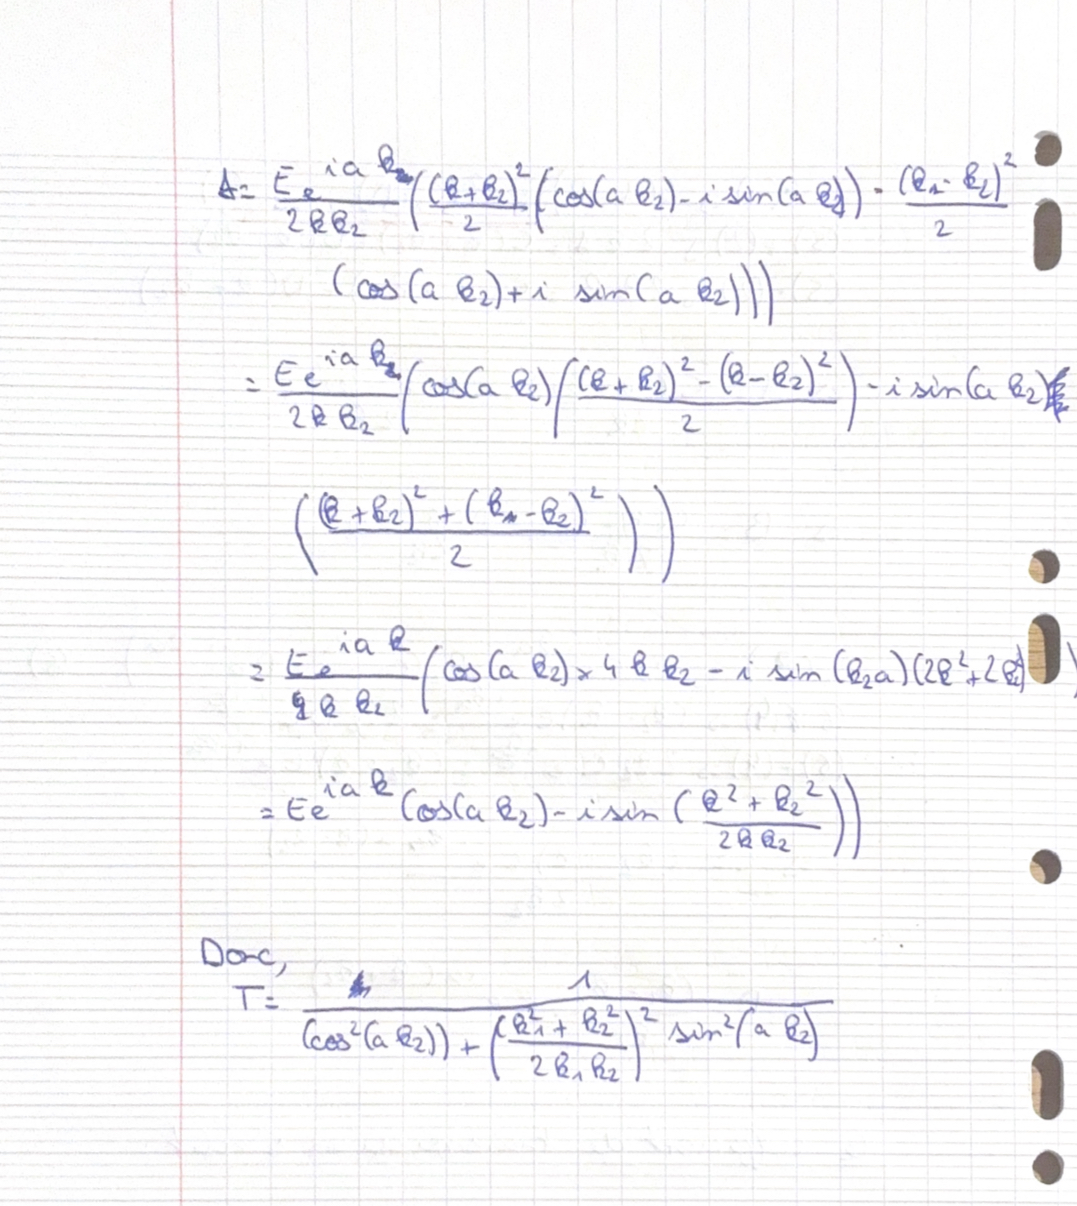 A = \frac{E e^{i a k}}{2 k k_2} \left( \frac{(k+k_2)^2}{2} (cos(a k_2) - i sin(a k_2)) - \frac{(k_1 - k_2)^2}{2}
(cos(a k_2) + i sin(a k_2))))
= \frac{E e^{i a k}}{2 k k_2} \left( cos(a k_2) \left( \frac{(k + k_2)^2 - (k - k_2)^2}{2} \right) - i sin(a k_2)
\left( \frac{(k + k_2)^2 + (k_1 - k_2)^2}{2} \right) )
= \frac{E e^{i a k}}{4 k k_2} ( cos(a k_2) × 4 k k_2 - i sin(k_2 a)(2k^2 + 2k_2^2) )
= E e^{i a k} (cos(a k_2) - i sin \left( \frac{k^2 + k_2^2}{2 k k_2} \right))
Donc,
T = \frac{1}{(cos^2(a k_2)) + \left( \frac{(k_1^2 + k_2^2}{2 k_1 k_2} \right)^2 sin^2(a k_2)}